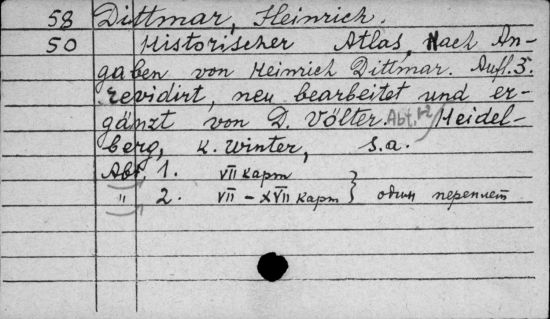 58 Dittmar, Heinrich.
50 Historischer Atlas, Nach An-
gaben von Heinrich Dittmar. Aufl. 3.
revidirt, neu bearbeitet und er-
gänzt von D. Völter. Abt. 1-2 Heidel-
berg, K. Winter, s.a.
Abt. 1. VII карт
" 2. VII – XVII карт } один переплет